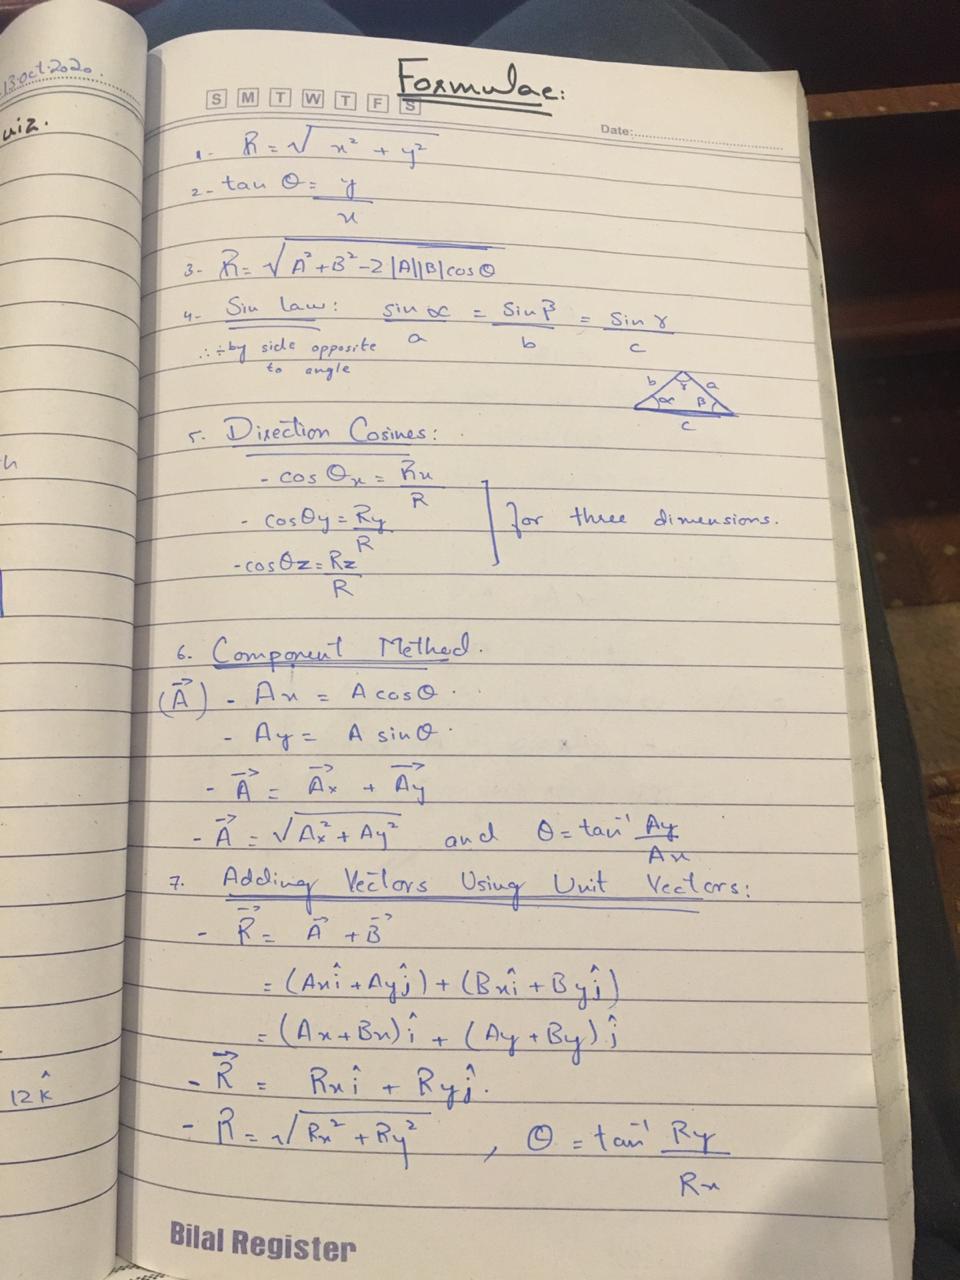 13 oct 2020.
uiz.
Formulae:
S M T W T F S
Date:
1- R = √x² + y²
2- tan θ = y/x
3- R = √A² + B² - 2|A||B|cos θ
4- Sin law: sin α/a = Sin β/b = Sin γ/c
∴ ÷ by side opposite
to angle
b γ a
α β
c
5. Direction Cosines:
- cos θx = Rx/R
- cos θy = Ry/R
for three dimensions.
- cos θz = Rz/R
6. Component Method.
(A⃗) - Ax = A cos θ.
- Ay = A sin θ.
- A⃗ = A⃗x + A⃗y
- A⃗ = √Ax² + Ay² and θ = tan⁻¹ Ay/Ax
7. Adding Vectors Using Unit Vectors:
- R⃗ = A⃗ + B⃗
= (Axî + Ayĵ) + (Bxî + Byĵ)
= (Ax + Bx)î + (Ay + By)ĵ
- R⃗ = Rxî + Ryĵ.
- R = √Rx² + Ry² , θ = tan⁻¹ Ry/Rx
12 k̂
Bilal Register